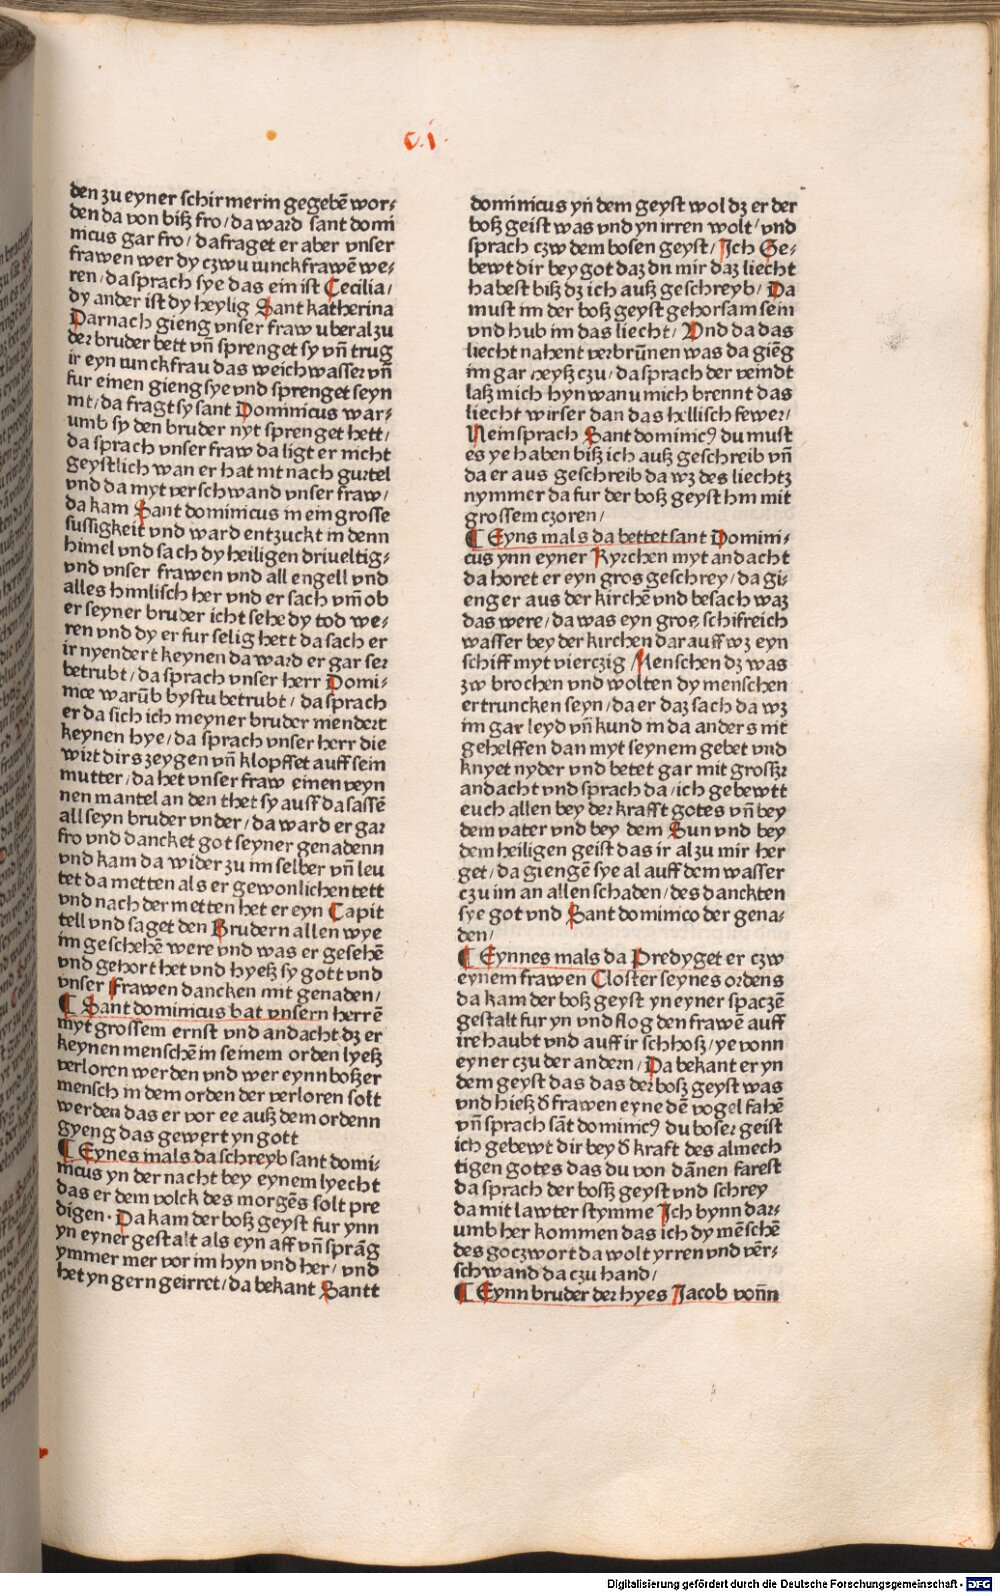 c.i
den zu eyner schirmerin gegebē wor⸗
den da von biß fro/ da ward sant domi
nicus gar fro/ da fraget er aber vnser
frawen wer dy czwu iunckfrawē we⸗
ren/ da sprach sye das ein ist Cecilia/
dy ander ist dy heylig Sant katherina
Darnach gieng vnser fraw vberal zu
der bruder bett vn̄ sprenget sy vn̄ trug
ir eyn iunckfrau das weichwasser vn̄
fur einen gieng sye vnd sprenget seyn
nit/ da fragt sy sant Dominicus war⸗
umb sy den bruder nyt sprenget hett/
da sprach vnser fraw da ligt er nicht
geystlich wan er hat nit nach gurtel
vnd da myt verschwand vnser fraw/
da kam Sant dominicus in ein grosse
sussigkeit vnd ward entzuckt in denn
himel vnd sach dy heiligen driueltig⸗
vnd vnser frawen vnd all engell vnd
alles himlisch her vnd er sach vm̄ ob
er seyner bruder icht sehe dy tod we⸗
ren vnd dy er fur selig hett da sach er
ir nyendert keynen da ward er gar ser
betrubt/ da sprach vnser herr Domi⸗
nice warūb bystu betrubt/ da sprach
er da sich ich meyner bruder nendert
keynen hye/ da sprach vnser herr die
wirt dirs zeygen vn̄ klopffet auff sein
mutter/ da het vnser fraw einen veyn
nen mantel an den thet sy auff da sassē
all seyn bruder vnder/ da ward er gar
fro vnd dancket got seyner genadenn
vnd kam da wider zu im selber vn̄ leu
tet da metten als er gewonlichen tett
vnd nach der metten het er eyn Capit
tell vnd saget den Brudern allen wye
im geschehē were vnd was er gesehē
vnd gehort het vnd hyeß sy gott vnd
vnser Frawen dancken mit genaden/
¶ Sant dominicus bat vnsern herrē
myt grossem ernst vnd andacht dz er
keynen menschē in seinem orden lyeß
verloren werden vnd wer eynn boßer
mensch in dem orden der verloren solt
werden das er vor ee auß dem ordenn
gyeng das gewert yn gott
¶ Eynes mals da schreyb sant domi⸗
nicus yn der nacht bey eynem lyecht
das er dem volck des morgēs solt pre
digen· Da kam der boß geyst fur ynn
yn eyner gestalt als eyn aff vn̄ sprāg
ymmer mer vor im hyn vnd her/ vnd
het yn gern geirret/ da bekant Santt
dominicus yn̄ dem geyst wol dz er der
boß geist was vnd yn irren wolt/ vnd
sprach czw dem bosen geyst/ Ich Ge⸗
bewt dir bey got daz dn mir daz liecht
habest biß dz ich auß geschreyb/ Da
must im der boß geyst gehorsam sein
vnd hub im das liecht/ Vnd da das
liecht nahent verbrūnen was da giēg
im gar heyß czu/ da sprach der veindt
laß mich hyn wan u mich brennt das
liecht wirser dan das hellisch fewer/
Nein sprach Sant dominicꝰ du must
es ye haben biß ich auß geschreib vn̄
da er aus geschreib da wz des liechtz
nymmer da fur der boß geyst hin mit
grossem czoren/
¶ Eyns mals da bettet sant Domini⸗
cus ynn eyner Kyrchen myt andacht
da horet er eyn gros geschrey/ da gi⸗
eng er aus der kirchē vnd besach waz
das were/ da was eyn gros schifreich
wasser bey der kirchen dar auff wz eyn
schiff myt vierczig Menschen dz was
zw brochen vnd wolten dy menschen
ertruncken seyn/ da er daz sach da wz
im gar leyd vn̄ kund in da anders nit
gehelffen dan myt seynem gebet vnd
knyet nyder vnd betet gar mit grosszr
andacht vnd sprach da/ ich gebewtt
euch allen bey der krafft gotes vn̄ bey
dem vater vnd bey dem Sun vnd bey
dem heiligen geist das ir al zu mir her
get/ da giengē sye al auff dem wasser
czu im an allen schaden/ des danckten
sye got vnd Sant dominico der gena⸗
den/
¶ Eynnes mals da Predyget er czw
eynem frawen Closter seynes ordens
da kam der boß geyst yn eyner spaczē
gestalt fur yn vnd flog den frawē auff
ire haubt vnd auff ir schhoß/ ye vonn
eyner czu der andern/ Da bekant er yn
dem geyst das das der boß geyst was
vnd hieß d̄ frawen eyne dē vogel fahē
vn̄ sprach sāt dominicꝰ du boser geist
ich gebewt dir bey d̄ kraft des almech
tigen gotes das du von dānen farest
da sprach der bosß geyst vnd schrey
da mit lawter stymme Ich bynn dar⸗
umb her kommen das ich dy mēschē
des goczwort da wolt yrren vnd vēr⸗
schwand da czu hand/
¶ Eynn bruder der hyes Jacob von̄n
Digitalisierung gefördert durch die Deutsche Forschungsgemeinschaft - DFG